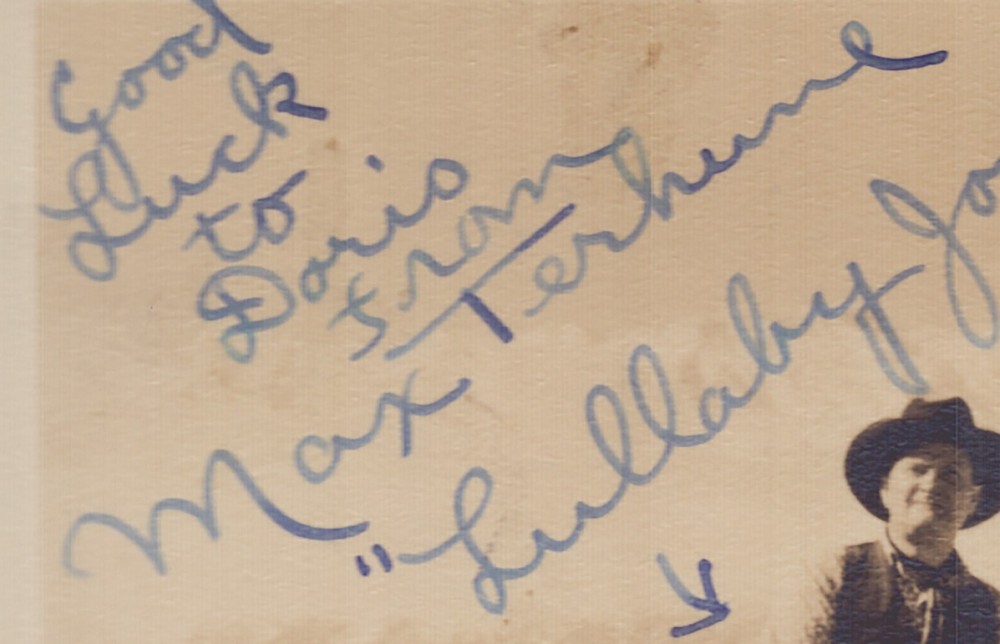 Good
Luck
to
Doris
from
Max Terhune
"Lullaby Jo